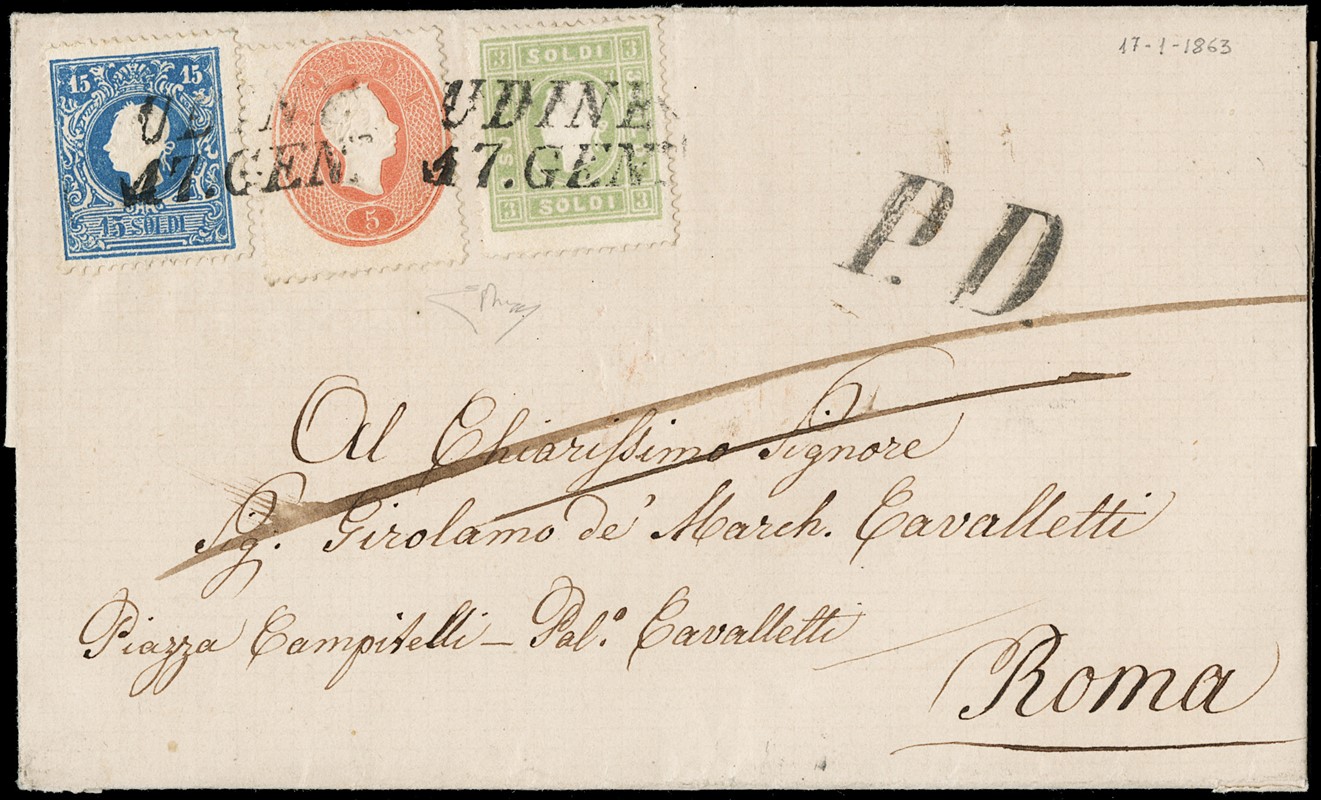 17-1-1863
15 15
15 SOLDI
5
3 SOLDI 3
3 SOLDI 3
UDINE
17.GEN.
UDINE
17.GEN.
P.D.
Al Chiarissimo Signore
Sig. Girolamo de' March. Cavalletti
Piazza Campitelli – Pal.º Cavalletti
Roma